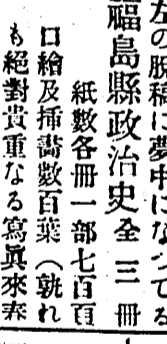 左の脱稿に夢中になつてる
福島縣政治史全三冊
紙數各冊一部七百頁
口繪及挿畵數百葉（孰れ
も絕對貴重なる寫眞來